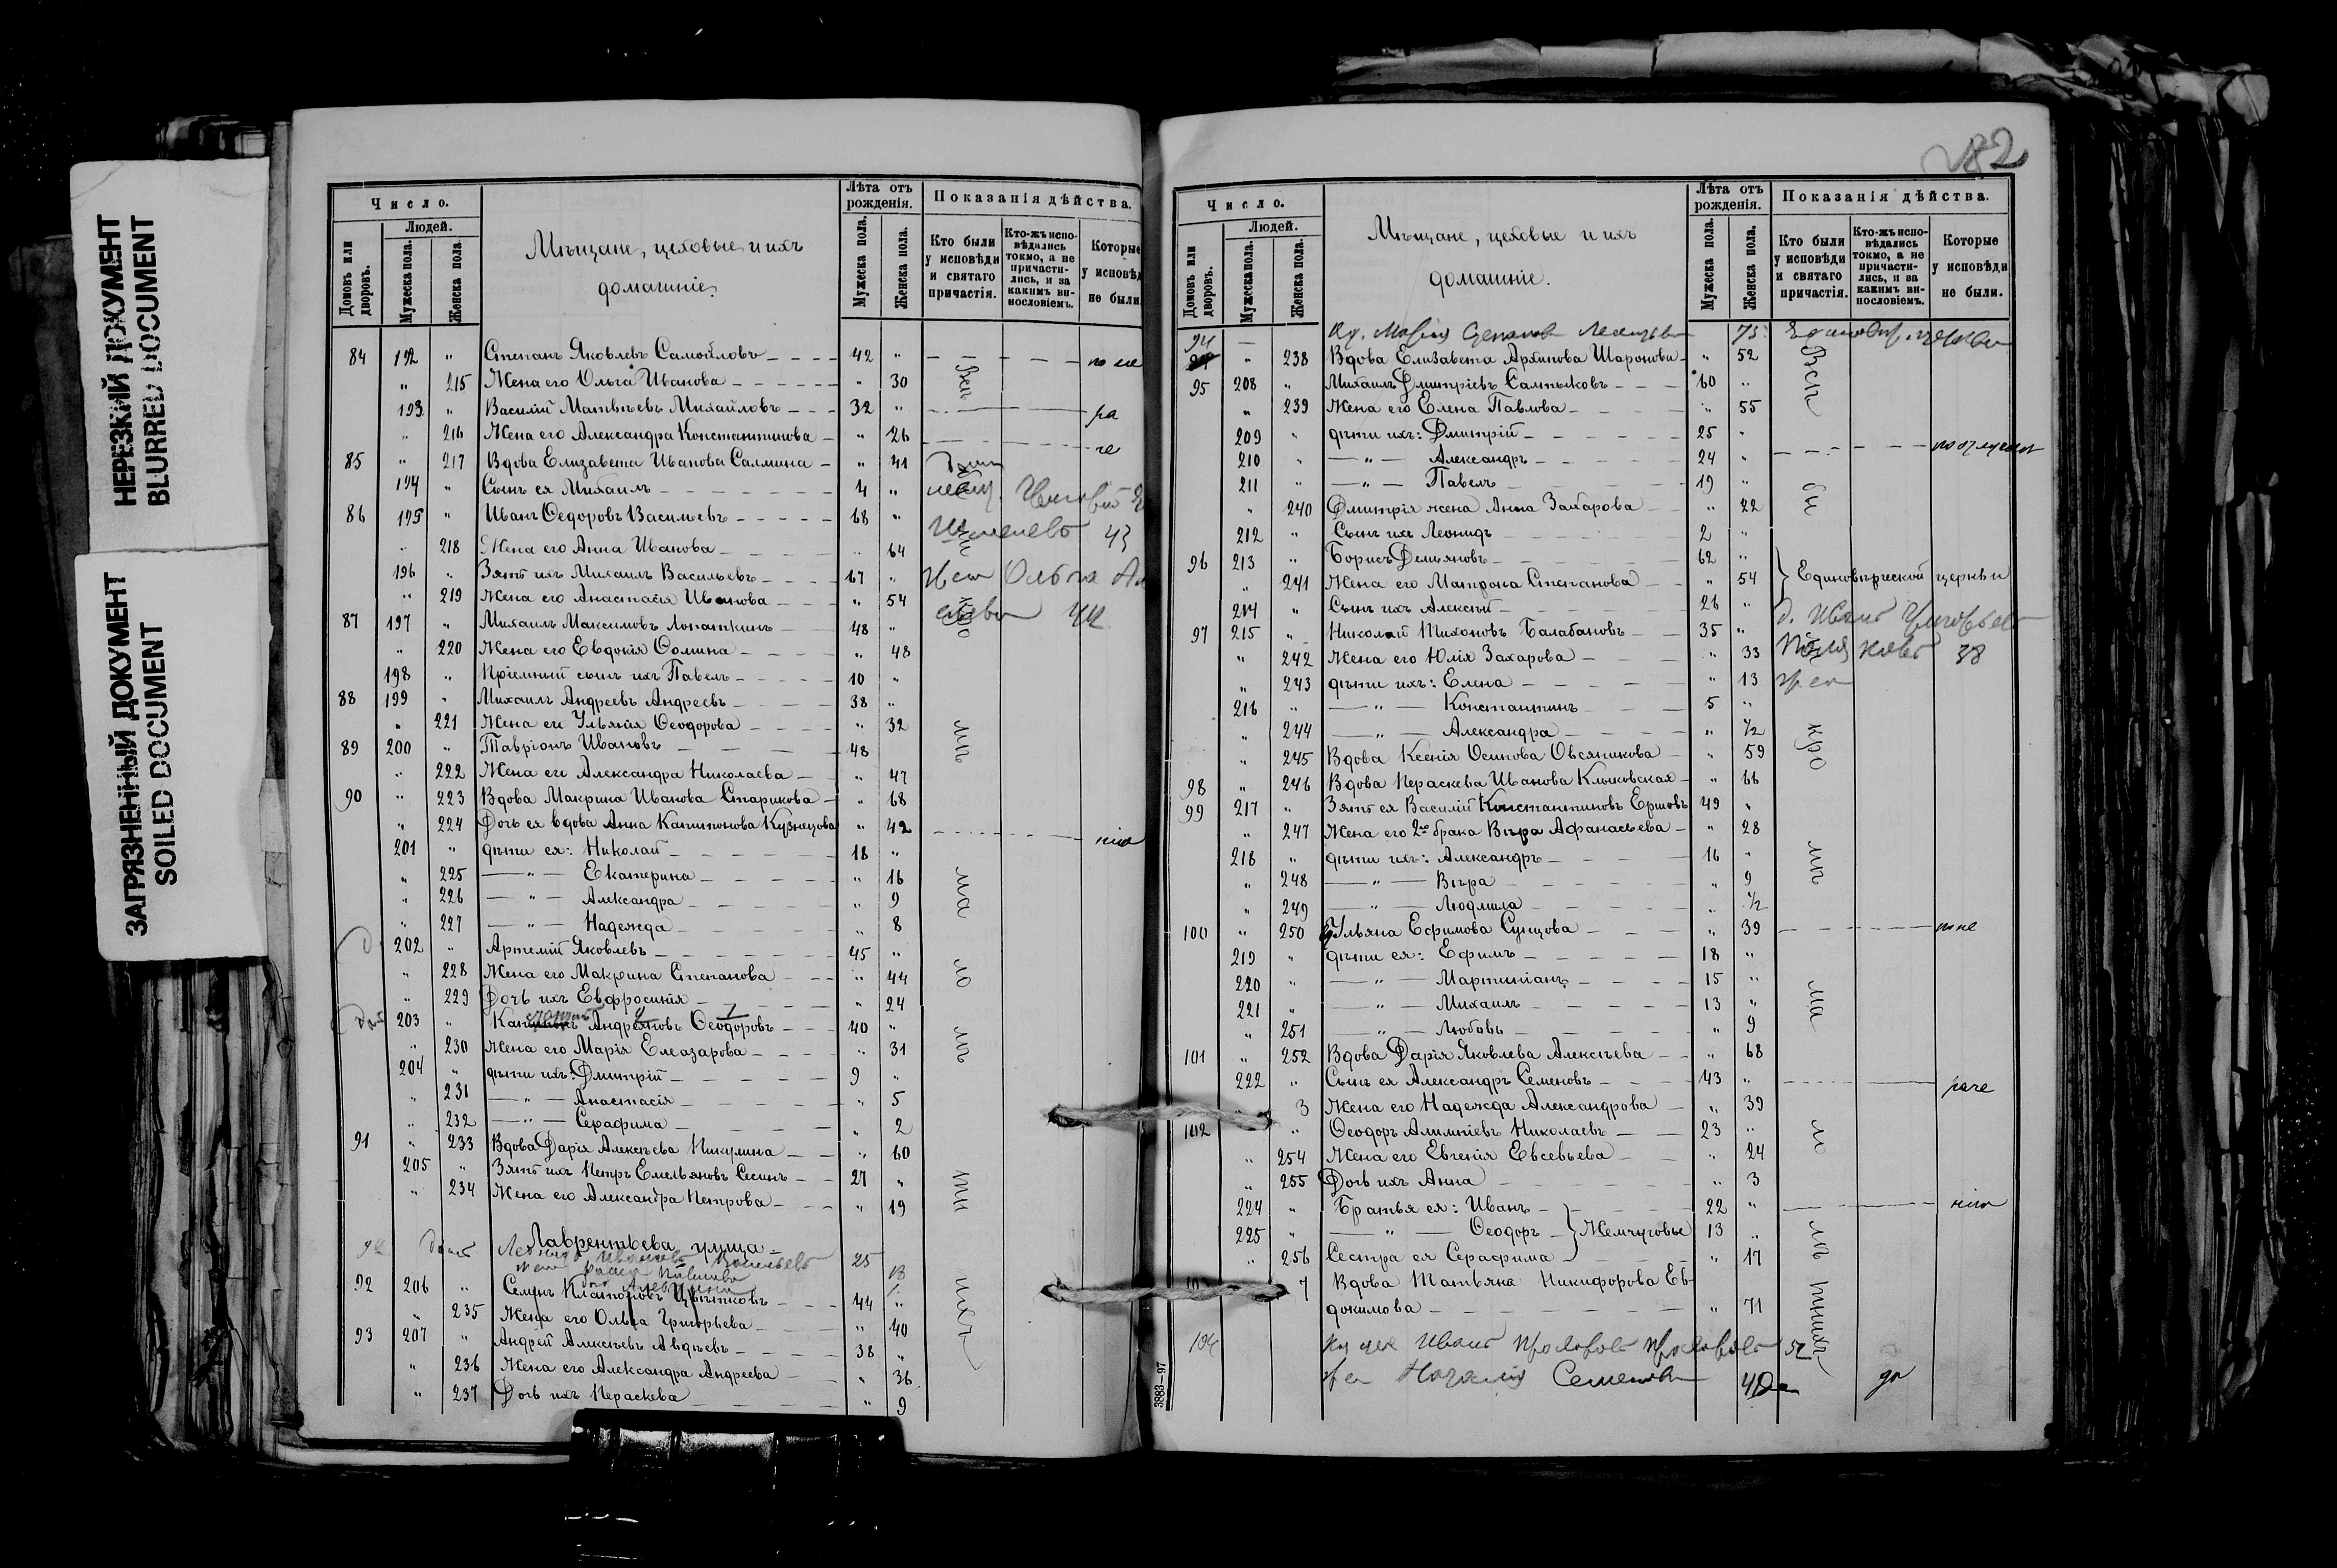 НЕРЕЗКИЙ ДОКУМЕНТ
BLURRED DOCUMENT
ЗАГРЯЗНЕННЫЙ ДОКУМЕНТ
SOILED DOCUMENT
Число.
Людей.
Домовъ или дворовъ.
Мужеска пола.
Женска пола.
Мѣщане, цеховые и ихъ
домашніе.
Лѣта отъ рожденія.
Мужеска пола.
Женска пола.
Показанія дѣйства.
Кто были у исповѣди и святаго причастія.
Кто-жъ исповѣдались токмо, а не причастились, и за какимъ винословіемъ.
Которые у исповѣд не были.
84 192 " Степанъ Яковлевъ Самойловъ 42 "
" 215 Жена его Ольга Иванова " 30
193 " Василій Матвѣевъ Михайловъ 32 "
" 216 Жена его Александра Константинова " 26
85 " 217 Вдова Елизавета Иванова Салмина " 41
194 " Сынъ ея Михаилъ 4 "
86 195 " Иванъ Ѳедоровъ Васильевъ 68 "
" 218 Жена его Анна Иванова " 64
196 " Зять ихъ Михаилъ Васильевъ 67 "
" 219 Жена его Анастасія Иванова " 54
87 197 " Михаилъ Максимовъ Лопаткинъ 48 "
" 220 Жена его Евдокія Ѳомина " 48
198 " Пріемный сынъ ихъ Павелъ 10 "
88 199 " Михаилъ Андреевъ Андреевъ 38 "
" 221 Жена его Ульянія Ѳеодорова " 32
89 200 " Тавріонъ Ивановъ 48
" 222 Жена его Александра Николаева " 47
90 " 223 Вдова Макрина Иванова Старикова " 68
" 224 Дочь ея вдова Анна Капитонова Кузнецова " 42
201 " дѣти ея: Николай 18 "
" 225 — " — Екатерина " 16
" 226 — " — Александра " 9
" 227 — " — Надежда " 8
202 " Артемій Яковлевъ 45 "
" 228 Жена его Макрина Степанова " 44
" 229 Дочь ихъ Евфросинія " 24
203 " Андреяновъ Ѳеодоровъ 40 "
" 230 Жена его Марія Елеазарова " 31
204 " дѣти ихъ: Дмитрій 9 "
" 231 — " — Анастасія " 5
" 232 — " — Серафима " 2
91 " 233 Вдова Дарія Алексѣева Никулина " 60
205 " Зять ихъ Петръ Емельяновъ Сесинъ 27 "
" 234 Жена его Александра Петрова " 19
Лаврентьева улица
Васильевъ 25
92 206 " Семенъ Платоновъ Цвѣтковъ 44 "
" 235 Жена его Ольга Григорьева " 40
93 207 " Андрей Алексѣевъ Авдѣевъ 38 "
" 236 Жена его Александра Андреева " 36
" 237 Дочь ихъ Параскева " 9
Число.
Людей.
Домовъ или дворовъ.
Мужеска пола.
Женска пола.
Мѣщане, цеховые и ихъ
домашніе.
Лѣта отъ рожденія.
Мужеска пола.
Женска пола.
Показанія дѣйства.
Кто были у исповѣди и святаго причастія.
Кто-жъ исповѣдались токмо, а не причастились, и за какимъ винословіемъ.
Которые у исповѣди не были.
94 75
238 Вдова Елизавета Архипова Шаронова " 52
95 208 " Михаилъ Дмитріевъ Салтыковъ 60 "
" 239 Жена его Елена Павлова " 55
209 " дѣти ихъ: Дмитрій 25 "
210 — " — Александръ 24 "
211 — " — Павелъ 19 "
" 240 Дмитрія жена Анна Захарова " 22
212 " Сынъ ихъ Леонидъ 2 "
96 213 " Борисъ Демьяновъ 62 "
" 241 Жена его Матрона Степанова " 54 Единовѣрческой церкви
214 " Сынъ ихъ Алексѣй 26 "
97 215 " Николай Тихоновъ Балабановъ 35 "
" 242 Жена его Юлія Захарова " 33
" 243 дѣти ихъ: Елена " 13
216 " — " — Константинъ 5 "
" 244 — " — Александра " ½
" 245 Вдова Ксенія Осипова Овсяникова " 59
98 " 246 Вдова Параскева Иванова Клыковская " 66
99 217 " Зять ея Василій Константиновъ Ершовъ 49 "
" 247 Жена его 2го брака Вѣра Афанасьева " 28
218 " дѣти ихъ: Александръ 16 "
" 248 — " — Вѣра " 9
" 249 — " — Людмила " ½
100 " 250 Ульяна Ефимова Сунцова " 39
219 " дѣти ея: Ефимъ 18 "
220 " — " — Мартиніанъ 15 "
221 " — " — Михаилъ 13 "
" 251 — " — Любовь " 9
101 " 252 Вдова Дарія Яковлева Алексѣева " 68
222 " Сынъ ея Александръ Семеновъ 43 "
3 Жена его Надежда Александрова " 39
102 " Ѳеодоръ Алимпіевъ Николаевъ 23 "
" 254 Жена его Евгенія Евсевьева " 24
" 255 Дочь ихъ Анна " 3
224 " Братья ея: Иванъ 22 "
225 " — " — Ѳеодоръ } Жемчуговы 13 "
" 256 Сестра ея Серафима " 17
7 Вдова Татьяна Никифорова Ев-
докимова " 71
104 Иванъ 52
Наталія Семенова
3883—97